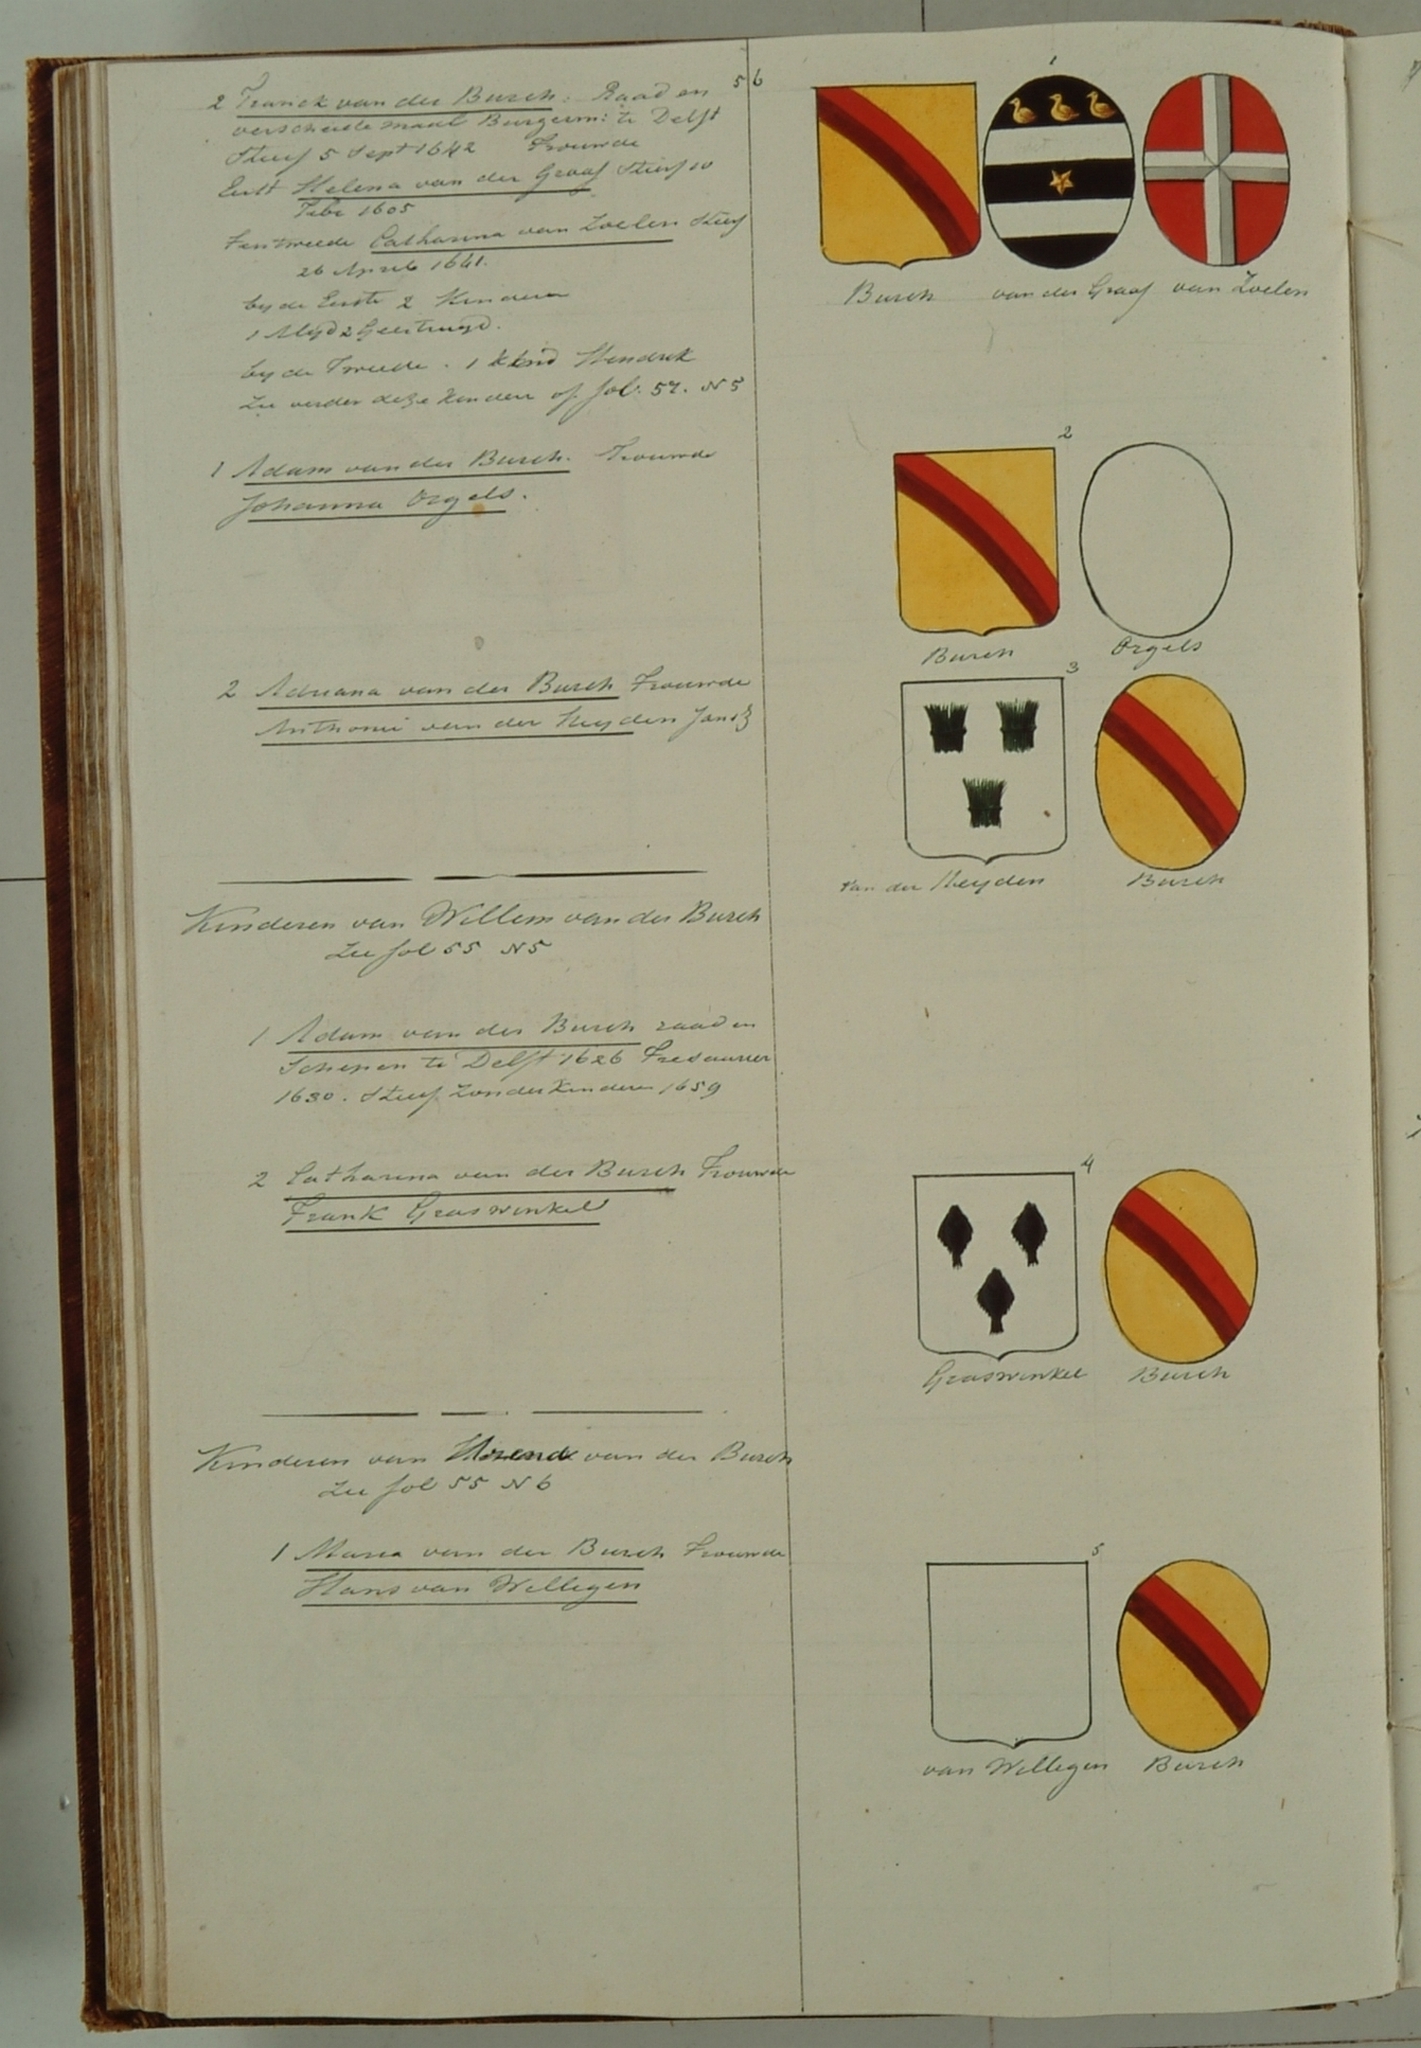 56
2 Franck van der Burch: Raad en
verscheide maal Burgerm: te Delft
Sterf 5 Sept 1642 Trouwde
Eerst Helena van der Graaf Sterf 10
Febr 1605
Ten tweede Catharina van Zoelen Sterf
26 April 1641.
by de Eerste 2 Kinderen
1 Alyd 2 Geertruyd.
by de Tweede . 1 kind Hendrik
Zie verder deze kinderen op fol. 57. N 5
1
Burch van der Graaf van Zoelen
1 Adam van der Burch. Trouwde
Johanna Orgels.
2
Burch Orgels
2 Adriana van der Burch Trouwde
Anthonie van der Heyden Jansz
3
van der Heyden Burch
Kinderen van Willem van der Burch
Zie fol 55 N 5
1 Adam van der Burch raad en
Schepen te Delft 1626 Tresaurier
1630. Sterf zonder Kinderen 1659
2 Catharina van der Burch Trouwde
Frank Graswinkel
4
Graswinkel Burch
Kinderen van van der Burch
Zie fol 55 N 6
1 Maria van der Burch Trouwde
Hans van Wellegen
5
van Wellegen Burch